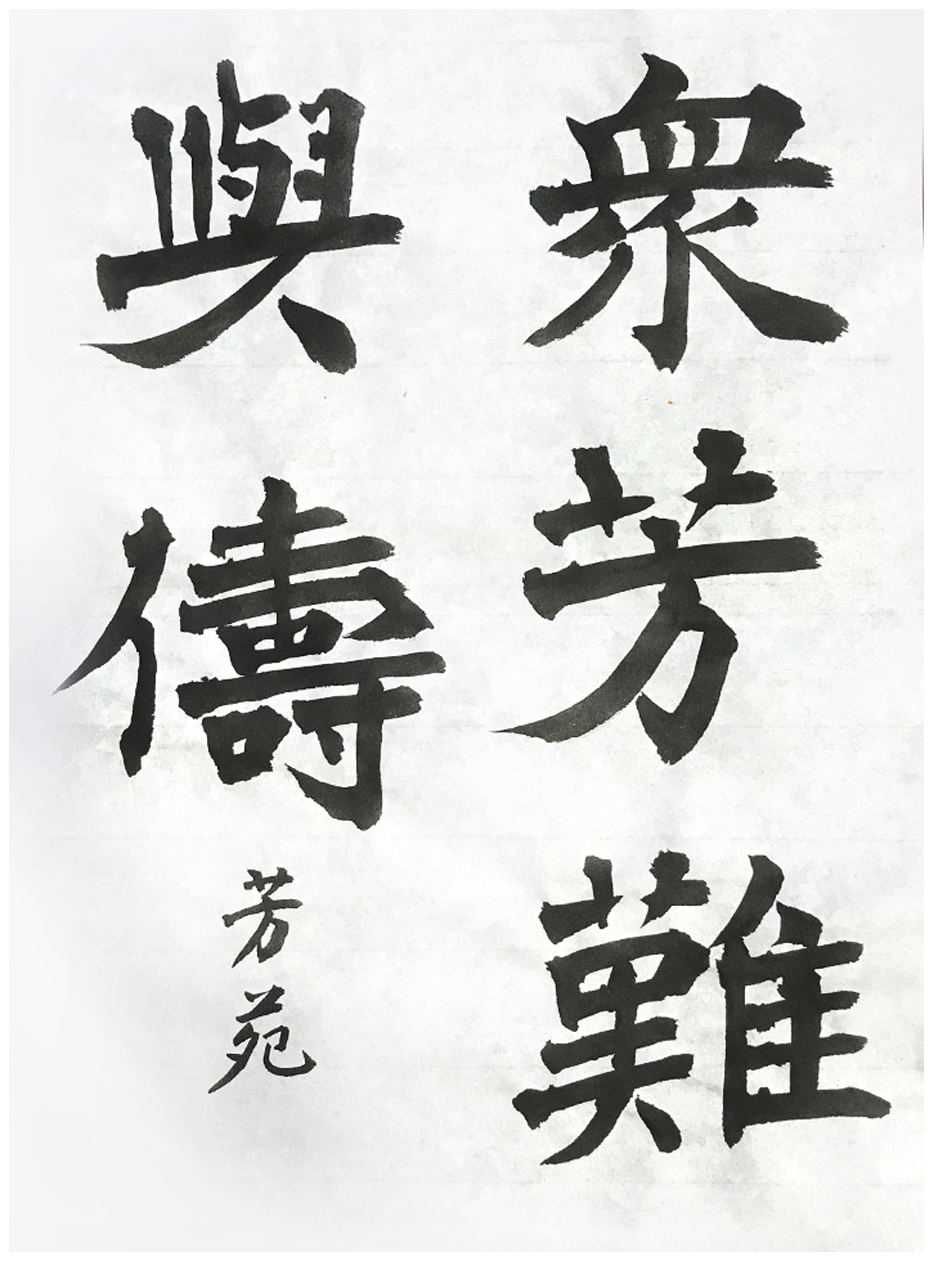 衆芳難
與儔
芳苑